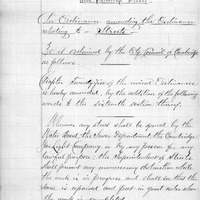 An Ordinance amending the Ordinance
relating to Streets
Be it ordained by the City Council of Cambridge
as follows.
Chapter Twenty five of the revised Ordinances
is hereby amended, by the addition of the following
words to the sixteenth section thereof.
Whenever any street shall be opened by the
Water Board, the Sewer Department, the Cambridge
Gas Light Company or by any person for any
purpose, the Superintendent of Streets
shall prevent any unnecessary obstruction while
the work is in progress, and shall see that the
same is repaired and put in good order when
the work is completed